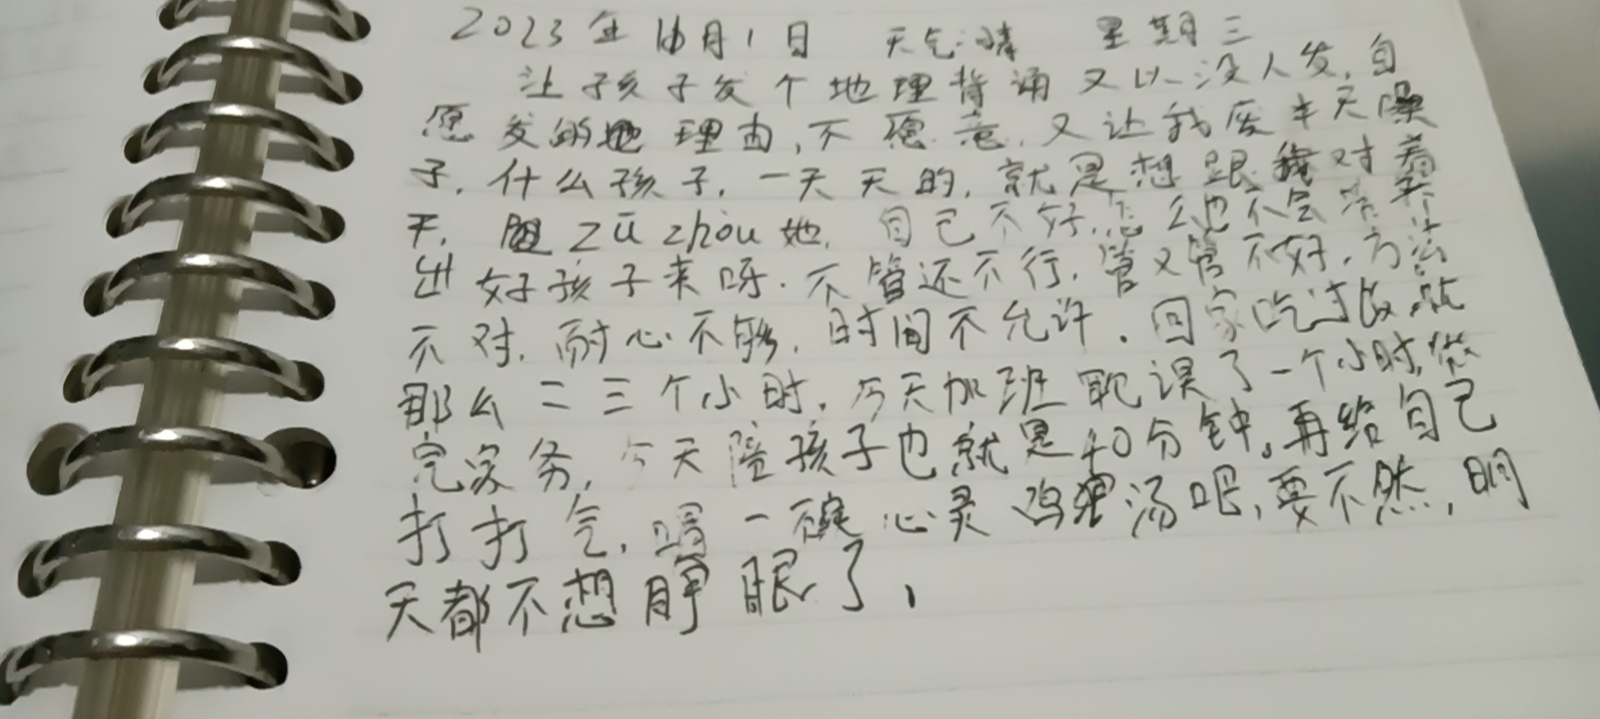 2023年11月1日 天气:晴 星期三
让孩子发个地理背诵又以没人发,自
愿发的地理由,不愿意,又让我废半天嗓
子,什么孩子,一天天的,就是想跟我对着
干, zǔ zhòu她,自己不好,怎么也不会培养
出好孩子来呀.不管还不行,管又管不好,方法
不对,耐心不够,时间不允许.回家吃过饭,就
那么二三个小时,今天加班耽误了一个小时,做
完家务,今天陪孩子也就是40分钟,再给自己
打打气,喝一碗心灵鸡汤吧,要不然,明
天都不想睁眼了,